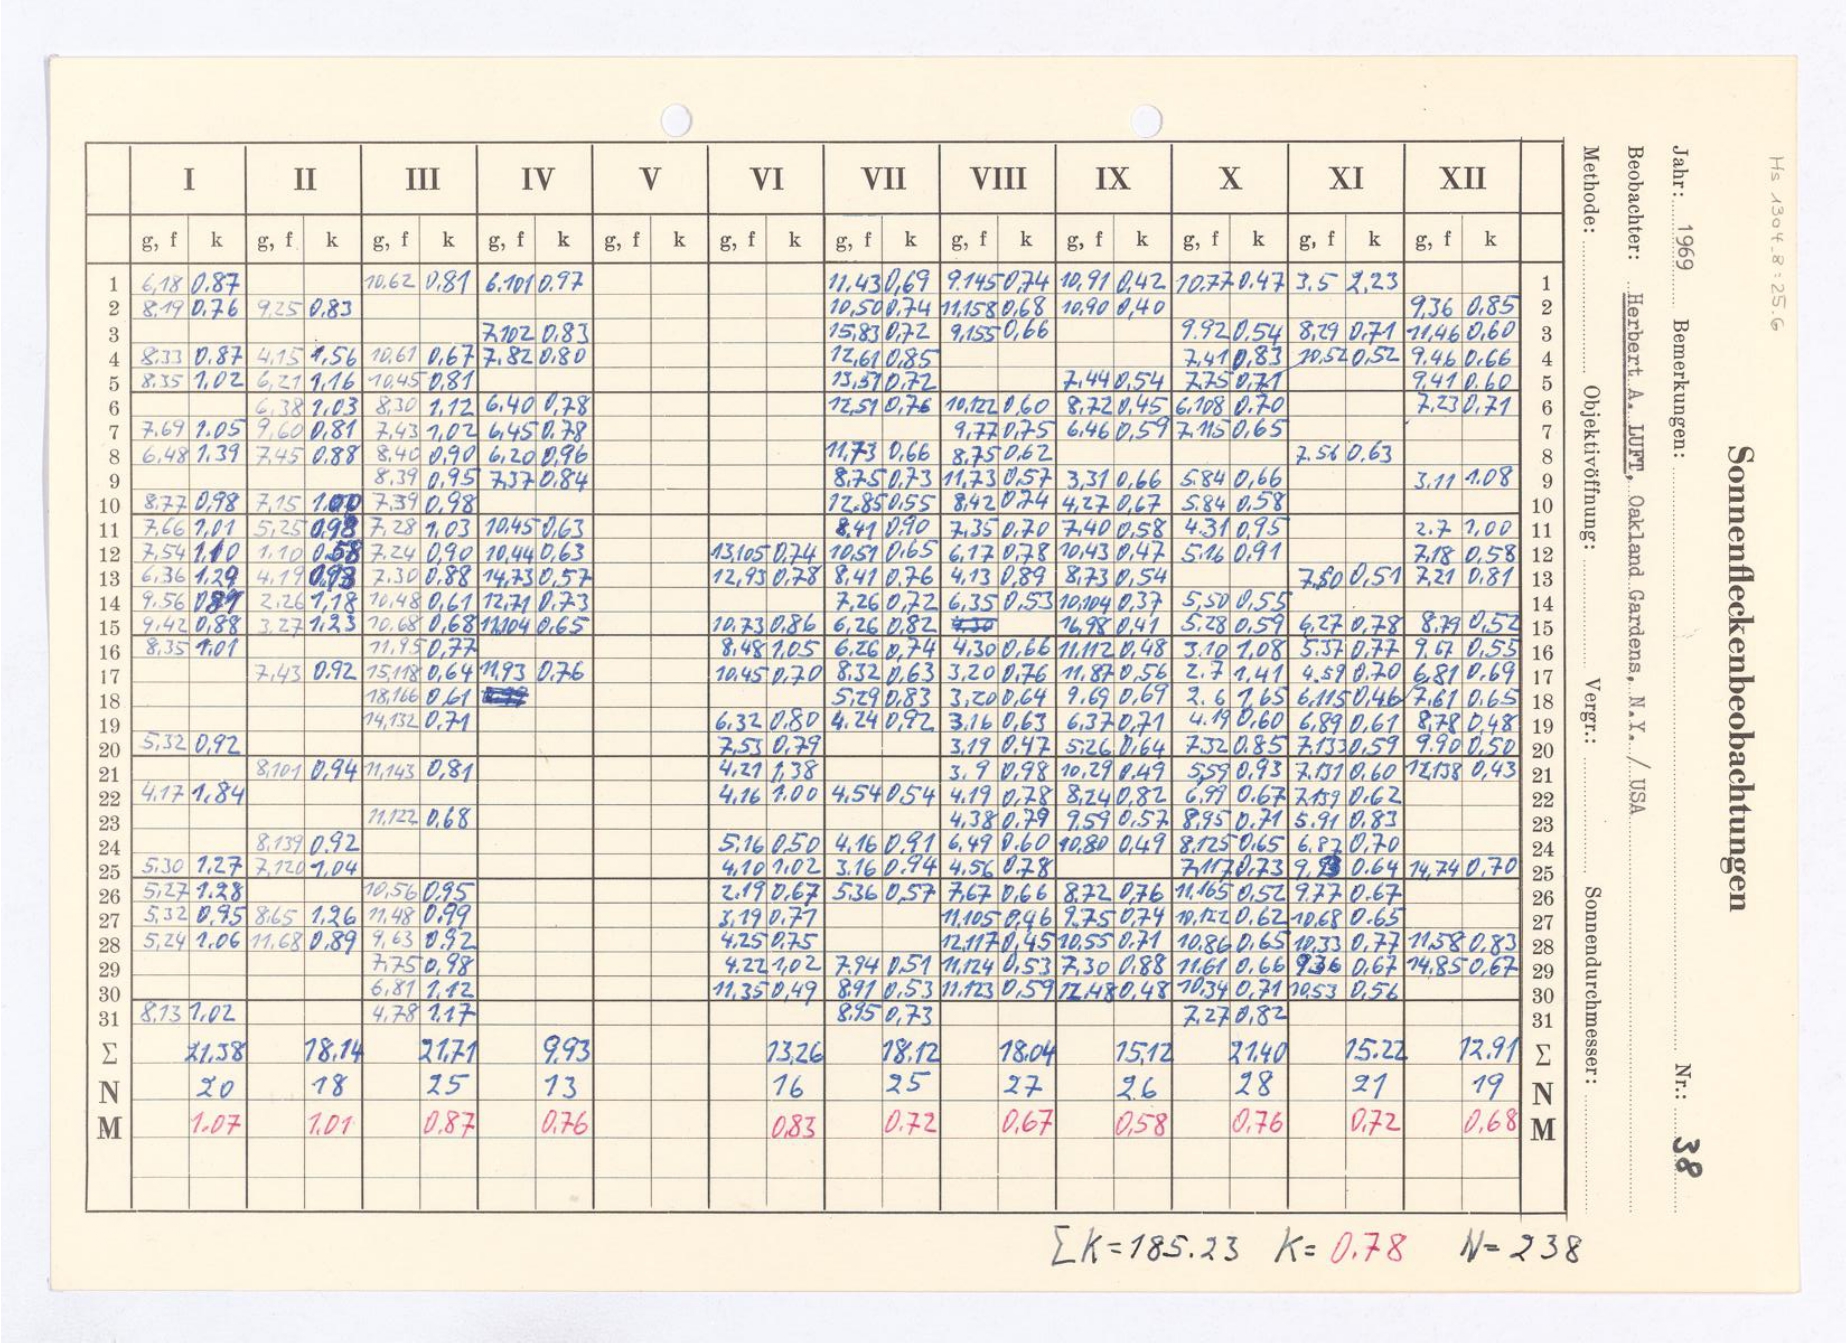 I II III IV V VI VII VIII IX X XI XII
g, f k g, f k g, f k g, f k g, f k g, f k g, f k g, f k g, f k g, f k g, f k g, f k
1 6,18 0,87 10,62 0,81 6.101 0,97 11,43 0,69 9.145 0,74 10,91 0,42 10.77 0.47 3.5 2,23 1
2 8,19 0,76 9,25 0,83 10,50 0,74 11,158 0,68 10,90 0,40 9,36 0,85 2
3 7,102 0,83 15,83 0,72 9,155 0,66 9.92 0,54 8,29 0,71 11,46 0,60 3
4 8,33 0,87 4,15 1,56 10,61 0,67 7,82 0,80 12,61 0,85 7,41 0,83 10,52 0,52 9,46 0.66 4
5 8,35 1,02 6,21 1,16 10,45 0,81 13,51 0,72 7,44 0,54 7.75 0,71 9,41 0.60 5
6 6,38 1,03 8,30 1,12 6,40 0,78 12,51 0,76 10,122 0,60 8,72 0,45 6,108 0,70 7,23 0,71 6
7 7,69 1.05 9,60 0,81 7,43 1,02 6,45 0.78 9,77 0,75 6,46 0,59 7,115 0,65 7
8 6,48 1,39 7,45 0,88 8,40 0,90 6,20 0,96 11,73 0,66 8,75 0,62 7.56 0,63 8
9 8,39 0,95 7,37 0,84 8,75 0,73 11,73 0,57 3,31 0,66 5.84 0,66 3,11 1.08 9
10 8,77 0,98 7,15 1.00 7,39 0,98 12.85 0,55 8,42 0,74 4,27 0,67 5.84 0,58 10
11 7,66 1,01 5,25 0,98 7,28 1,03 10,45 0,63 8,41 0,90 7,35 0,70 7,40 0,58 4.31 0,95 2.7 1,00 11
12 7,54 1,10 1.10 0,58 7.24 0,90 10,44 0,63 13,105 0,74 10,51 0,65 6,17 0,78 10,43 0,47 5.16 0,91 7,18 0,58 12
13 6,36 1,29 4,19 0,93 7.30 0,88 14,73 0,57 12,93 0,78 8,41 0,76 4,13 0,89 8,73 0,54 7.50 0,51 7,21 0,81 13
14 9,56 0,81 2,26 1,18 10,48 0,61 12,71 0,73 7,26 0,72 6,35 0,53 10,104 0,37 5,50 0,55 14
15 9,42 0,88 3.27 1,23 10,68 0,68 11,104 0.65 10,73 0,86 6,26 0,82 4,30 16,98 0,41 5.28 0,59 6,27 0,78 8,79 0,52 15
16 8,35 1,01 11,95 0,77 8,48 1,05 6,26 0,74 4,30 0,66 11,112 0,48 3.10 1,08 5.37 0,77 9,67 0,55 16
17 7,43 0.92 15,118 0,64 11,93 0.76 10,45 0,70 8,32 0,63 3,20 0,76 11,87 0,56 2.7 1,41 4.59 0,70 6,81 0,69 17
18 18,166 0,61 5,29 0,83 3,20 0,64 9.69 0,69 2.6 1,65 6,115 0,46 7,61 0.65 18
19 14,132 0,71 6,32 0,80 4.24 0,92 3.16 0,63 6,37 0,71 4.19 0,60 6,89 0,61 8,78 0,48 19
20 5,32 0,92 7,53 0,79 3,19 0.47 5,26 0,64 7.32 0.85 7,133 0,59 9.90 0,50 20
21 8,101 0,94 11,143 0,81 4,21 1,38 3.9 0,98 10,29 0.49 5,59 0,93 7.131 0,60 12,138 0,43 21
22 4,17 1,84 4,16 1.00 4,54 0,54 4,19 0,78 8,24 0,82 6,99 0.67 7,139 0.62 22
23 11,122 0,68 4,38 0,79 9,59 0,57 8,95 0,71 5.91 0,83 23
24 8,139 0,92 5,16 0,50 4,16 0,91 6,49 0.60 10,80 0,49 8,125 0,65 6.87 0,70 24
25 5.30 1.27 7,120 1.04 4,10 1.02 3.16 0.94 4,56 0.78 7,117 0,73 0.64 14,74 0,70 25
26 5,27 1.28 10,56 0,95 2.19 0,67 5,36 0,57 7,67 0,66 8,72 0,76 11,165 0,52 9.77 0.67 26
27 5,32 0,95 8,65 1,26 11.48 0,99 3,19 0.77 11,105 0,46 9.75 0,74 10,122 0,62 10,68 0.65 27
28 5,24 1.06 11,68 0,89 9,63 0.92 4,25 0,75 12,117 0,45 10,55 0.71 10.86 0,65 10,33 0,77 11,58 0,83 28
29 7.75 0,98 4.22 1,02 7.94 0,51 11,124 0,53 7,30 0,88 11.61 0,66 9.36 0,67 14,85 0,67 29
30 6,81 1.12 11,35 0,49 8,91 0,53 11,123 0,59 12,48 0,48 10,34 0,71 10,53 0,56 30
31 8,13 1,02 4,78 1,17 8,95 0,73 7,27 0,82 31
Σ 21.38 18.14 21,71 9.93 13,26 18,12 18,04 15,12 21.40 15.22 12.91 Σ
N 20 18 25 13 16 25 27 26 28 21 19 N
M 1.07 1.01 0.87 0.76 0,83 0.72 0,67 0,58 0,76 0,72 0,68 M
ΣK=185.23 K=0.78 N=238
Hs 1304.8:25.6
Sonnenfleckenbeobachtungen
Jahr: 1969 Bemerkungen: Nr.: 38
Beobachter: Herbert A. LUFT, Oakland Gardens, N.Y. / USA
Methode: Objektivöffnung: Vergr.: Sonnendurchmesser: